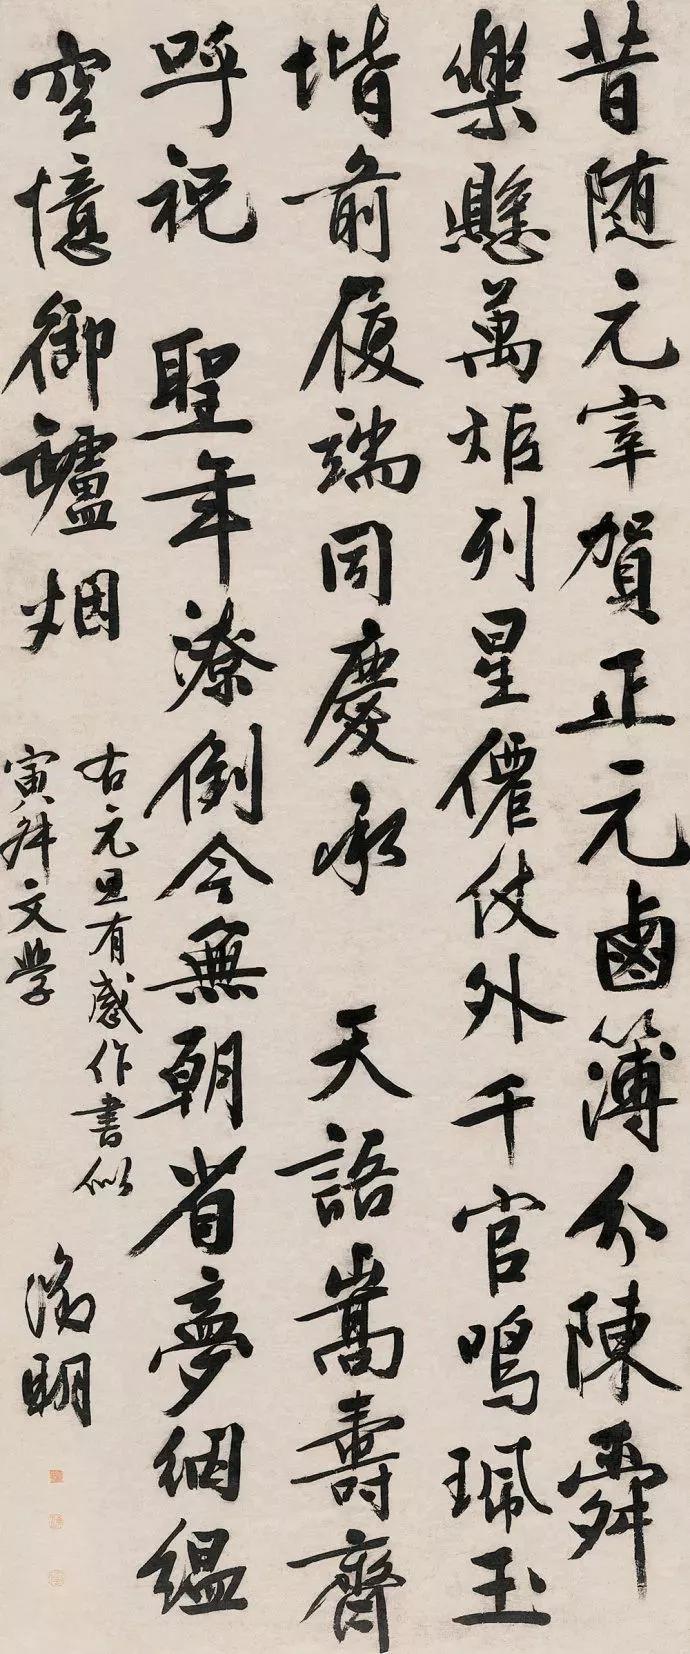 昔随元宰賀正元鹵簿分陳舜
樂懸萬炬列星僊仗外千官鳴珮玉
堦前履端同慶承 天語嵩壽齊
呼祝 聖年潦倒今無朝省夢絪縕
空憶御罏烟
右元旦有感作書似
寅舛文學
徵明